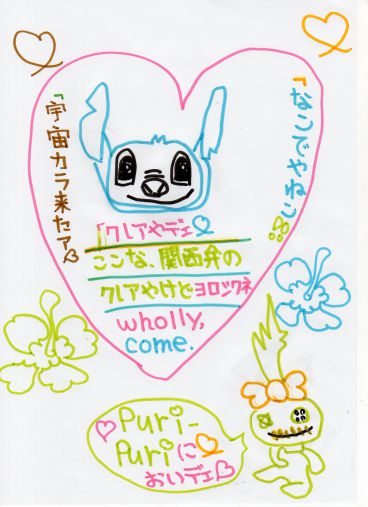 「なんでやねん」
「宇宙カラ来たァ
「クレアやデェ
ここンな、関西弁の
クレアやけどヨロシクネ
wholly,
come.
Puri-
Puriに
おいデェ